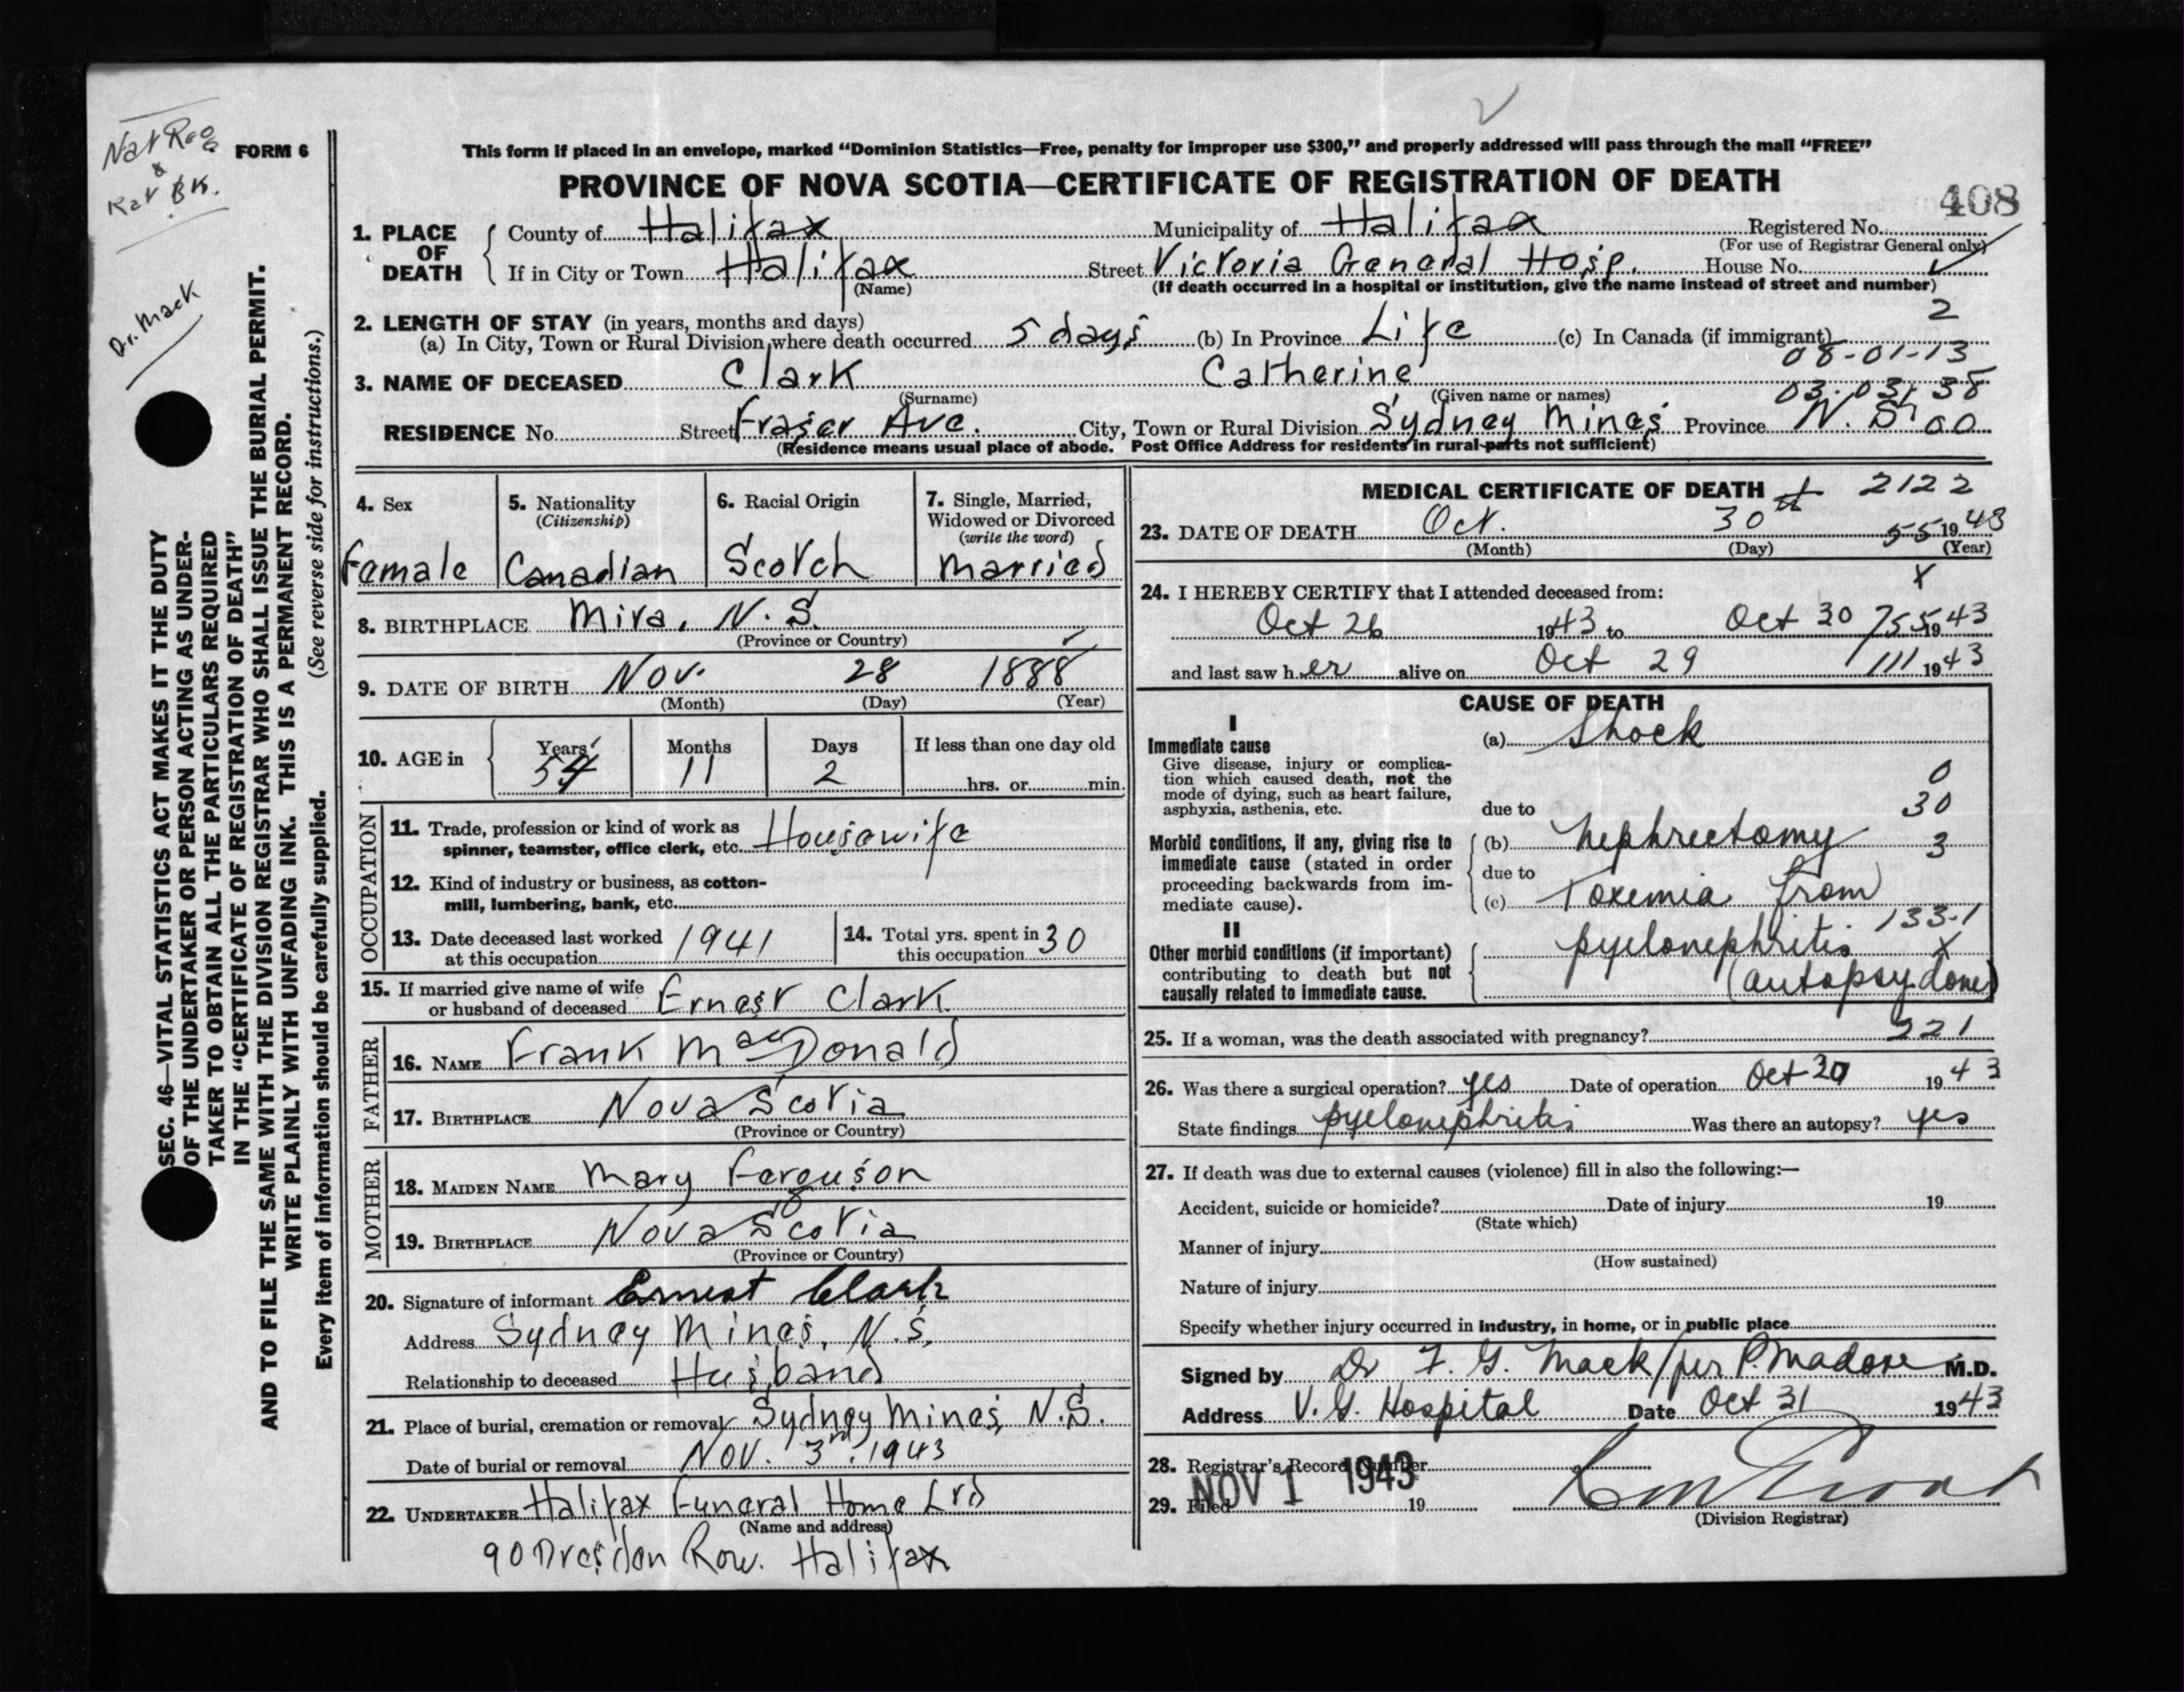 Nat Reg
&
Rat BK.
FORM 6
Dr. Mack
SEC. 46—VITAL STATISTICS ACT MAKES IT THE DUTY
OF THE UNDERTAKER OR PERSON ACTING AS UNDER-
TAKER TO OBTAIN ALL THE PARTICULARS REQUIRED
IN THE "CERTIFICATE OF REGISTRATION OF DEATH"
AND TO FILE THE SAME WITH THE DIVISION REGISTRAR WHO SHALL ISSUE THE BURIAL PERMIT.
WRITE PLAINLY WITH UNFADING INK. THIS IS A PERMANENT RECORD.
Every item of information should be carefully supplied. (See reverse side for instructions.)
This form if placed in an envelope, marked "Dominion Statistics—Free, penalty for improper use $300," and properly addressed will pass through the mail "FREE"
PROVINCE OF NOVA SCOTIA—CERTIFICATE OF REGISTRATION OF DEATH
408
1. PLACE OF DEATH County of Halifax Municipality of Halifax Registered No.
(For use of Registrar General only)
If in City or Town Halifax Street Victoria General Hosp. House No.
(Name) (If death occurred in a hospital or institution, give the name instead of street and number)
2. LENGTH OF STAY (in years, months and days) 2
(a) In City, Town or Rural Division where death occurred 5 days (b) In Province Life (c) In Canada (if immigrant)
08-01-13
3. NAME OF DECEASED Clark Catherine
(Surname) (Given name or names) 03-03-38
RESIDENCE No. Street Fraser Ave. City, Town or Rural Division Sydney Mines Province N.S. 00
(Residence means usual place of abode. Post Office Address for residents in rural parts not sufficient)
4. Sex 5. Nationality (Citizenship) 6. Racial Origin 7. Single, Married, Widowed or Divorced (write the word)
Female Canadian Scotch Married
8. BIRTHPLACE Mira, N.S.
(Province or Country)
9. DATE OF BIRTH Nov. 28 1888
(Month) (Day) (Year)
10. AGE in Years Months Days If less than one day old
54 11 2 hrs. or min.
OCCUPATION
11. Trade, profession or kind of work as
spinner, teamster, office clerk, etc. Housewife
12. Kind of industry or business, as cotton-
mill, lumbering, bank, etc.
13. Date deceased last worked
at this occupation 1941
14. Total yrs. spent in
this occupation 30
15. If married give name of wife
or husband of deceased Ernest Clark
FATHER
16. NAME Frank MacDonald
17. BIRTHPLACE Nova Scotia
(Province or Country)
MOTHER
18. MAIDEN NAME Mary Ferguson
19. BIRTHPLACE Nova Scotia
(Province or Country)
20. Signature of informant Ernest Clark
Address Sydney Mines, N.S.
Relationship to deceased Husband
21. Place of burial, cremation or removal Sydney Mines, N.S.
Date of burial or removal Nov. 3rd, 1943
22. UNDERTAKER Halifax Funeral Home Ltd
(Name and address)
90 Dresden Row. Halifax
MEDICAL CERTIFICATE OF DEATH 2122
23. DATE OF DEATH Oct. 30th 55 1943
(Month) (Day) (Year)
24. I HEREBY CERTIFY that I attended deceased from: X
Oct 26 1943 to Oct 30 755 1943
and last saw her alive on Oct 29 111 1943
CAUSE OF DEATH
I
Immediate cause
Give disease, injury or complica-
tion which caused death, not the
mode of dying, such as heart failure,
asphyxia, asthenia, etc.
(a) Shock
0
due to 30
Morbid conditions, if any, giving rise to
immediate cause (stated in order
proceeding backwards from im-
mediate cause).
(b) Nephrectomy 3
due to
(c) Toxemia from
133-1
II
Other morbid conditions (if important)
contributing to death but not
causally related to immediate cause.
pyelonephritis X
(autopsy done)
25. If a woman, was the death associated with pregnancy? 221
26. Was there a surgical operation? yes Date of operation Oct 30 1943
State findings pyelonephritis Was there an autopsy? yes
27. If death was due to external causes (violence) fill in also the following:—
Accident, suicide or homicide? Date of injury 19
(State which)
Manner of injury
(How sustained)
Nature of injury
Specify whether injury occurred in industry, in home, or in public place
Signed by Dr F. G. Mack/per P. Madore M.D.
Address V. G. Hospital Date Oct 31 1943
28. Registrar's Record Number
29. Filed NOV 1 1943 19
(Division Registrar)